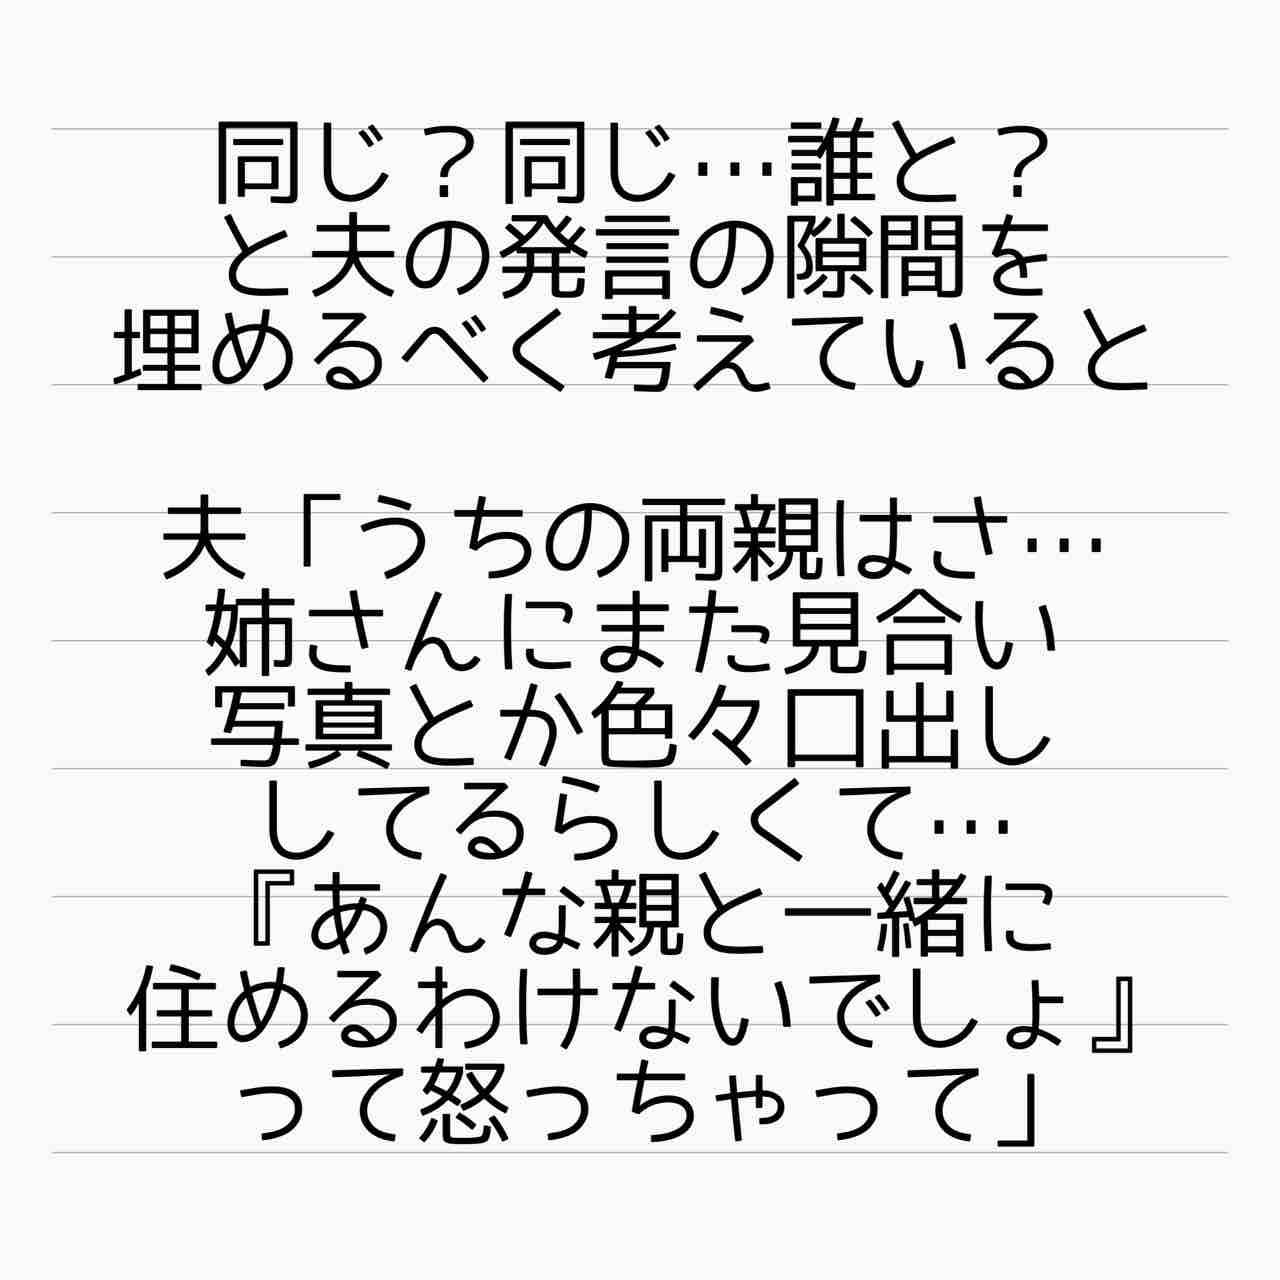 同じ？同じ…誰と？
と夫の発言の隙間を
埋めるべく考えていると
夫「うちの両親はさ…
姉さんにまた見合い
写真とか色々口出し
してるらしくて…
『あんな親と一緒に
住めるわけないでしょ』
って怒っちゃって」